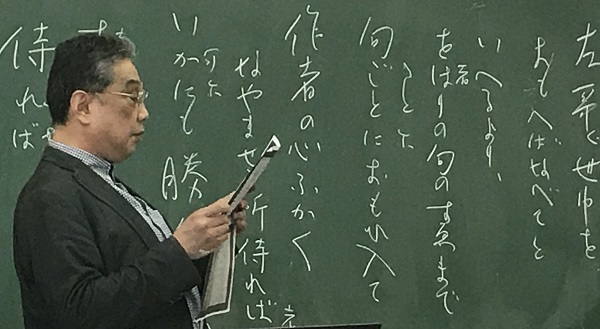 左哥世中を
おもへばなべてと
いへるより、
をはりの句のすゑまで
句ごとにおもひ入て
作者の心ふかく
なやませ 所侍れば
いかにも勝
侍れば